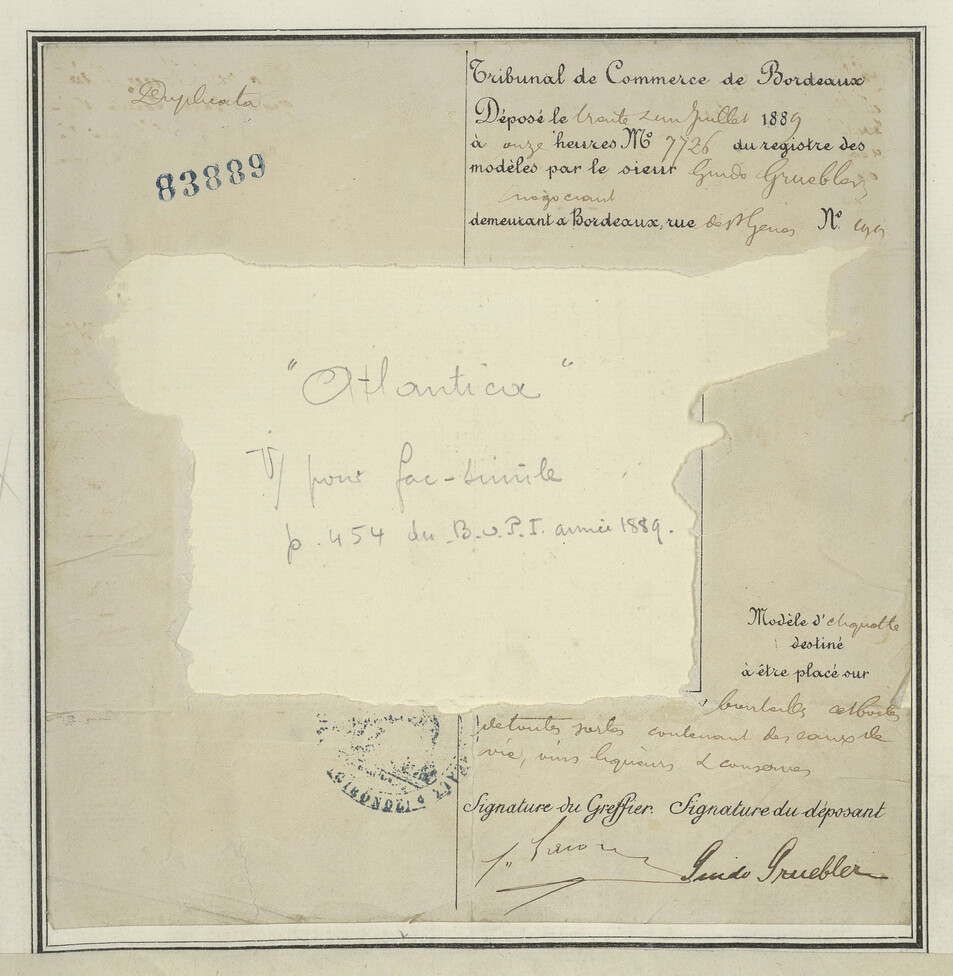 Duplicata
83889
Tribunal de Commerce de Bordeaux
Déposé le trente et un Juillet 1889
à onze heures Nº 7726 du registre des
modèles par le sieur Guido Gruebler
négociant
demeurant a Bordeaux, rue de St Genès Nº
"Atlantica"
V/ pour fac-simile
p. 454 du B.o.P.I. année 1889.
Modèle d'etiquette
destiné
à être placé sur
bouteilles et boites
de toutes sortes contenant des eaux de
vie, vins liqueurs & conserves
GIRONDE
Signature du Greffier. Signature du déposant
Guido Gruebler